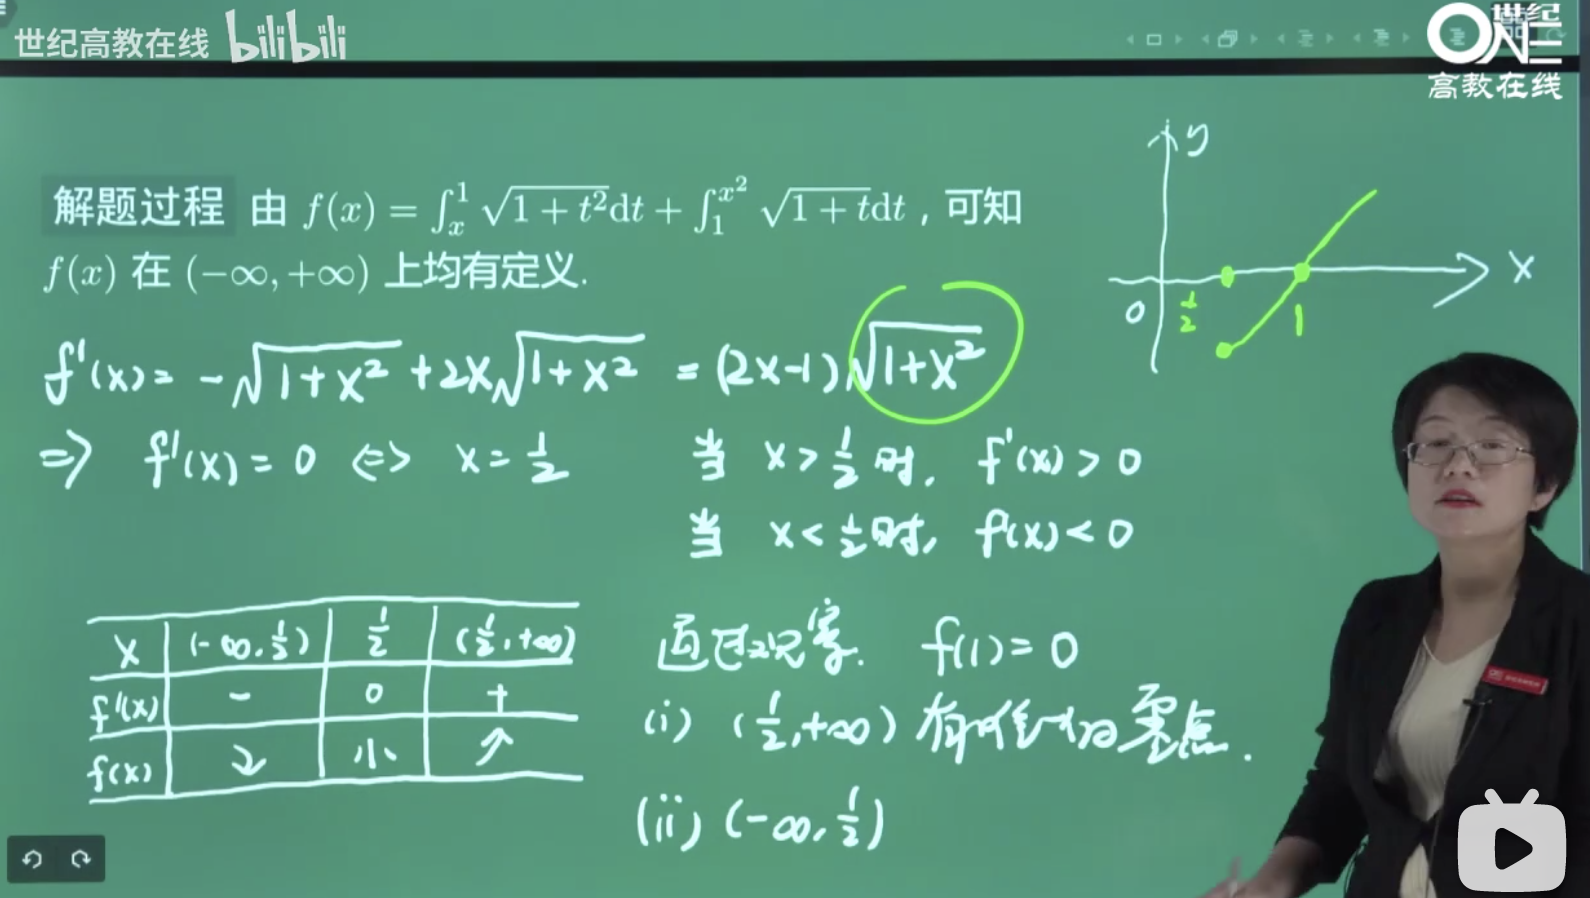 世纪高教在线 bilibili
世纪
ON
高教在线
解题过程 由 f(x) = ∫_x^1 √(1+t²)dt + ∫_1^{x²} √(1+t)dt，可知
f(x) 在 (−∞,+∞) 上均有定义.
f'(x) = −√(1+x²) + 2x√(1+x²) = (2x−1)√(1+x²)
⇒ f'(x) = 0 ⇔ x = 1/2 当 x > 1/2 时, f'(x) > 0
当 x < 1/2 时, f'(x) < 0
x (−∞,1/2) 1/2 (1/2,+∞)
f'(x) − 0 +
f(x) ↘ 小 ↗
通过观察. f(1) = 0
(i) (1/2,+∞) 有唯一的零点.
(ii) (−∞,1/2)
y
x
0 1/2 1